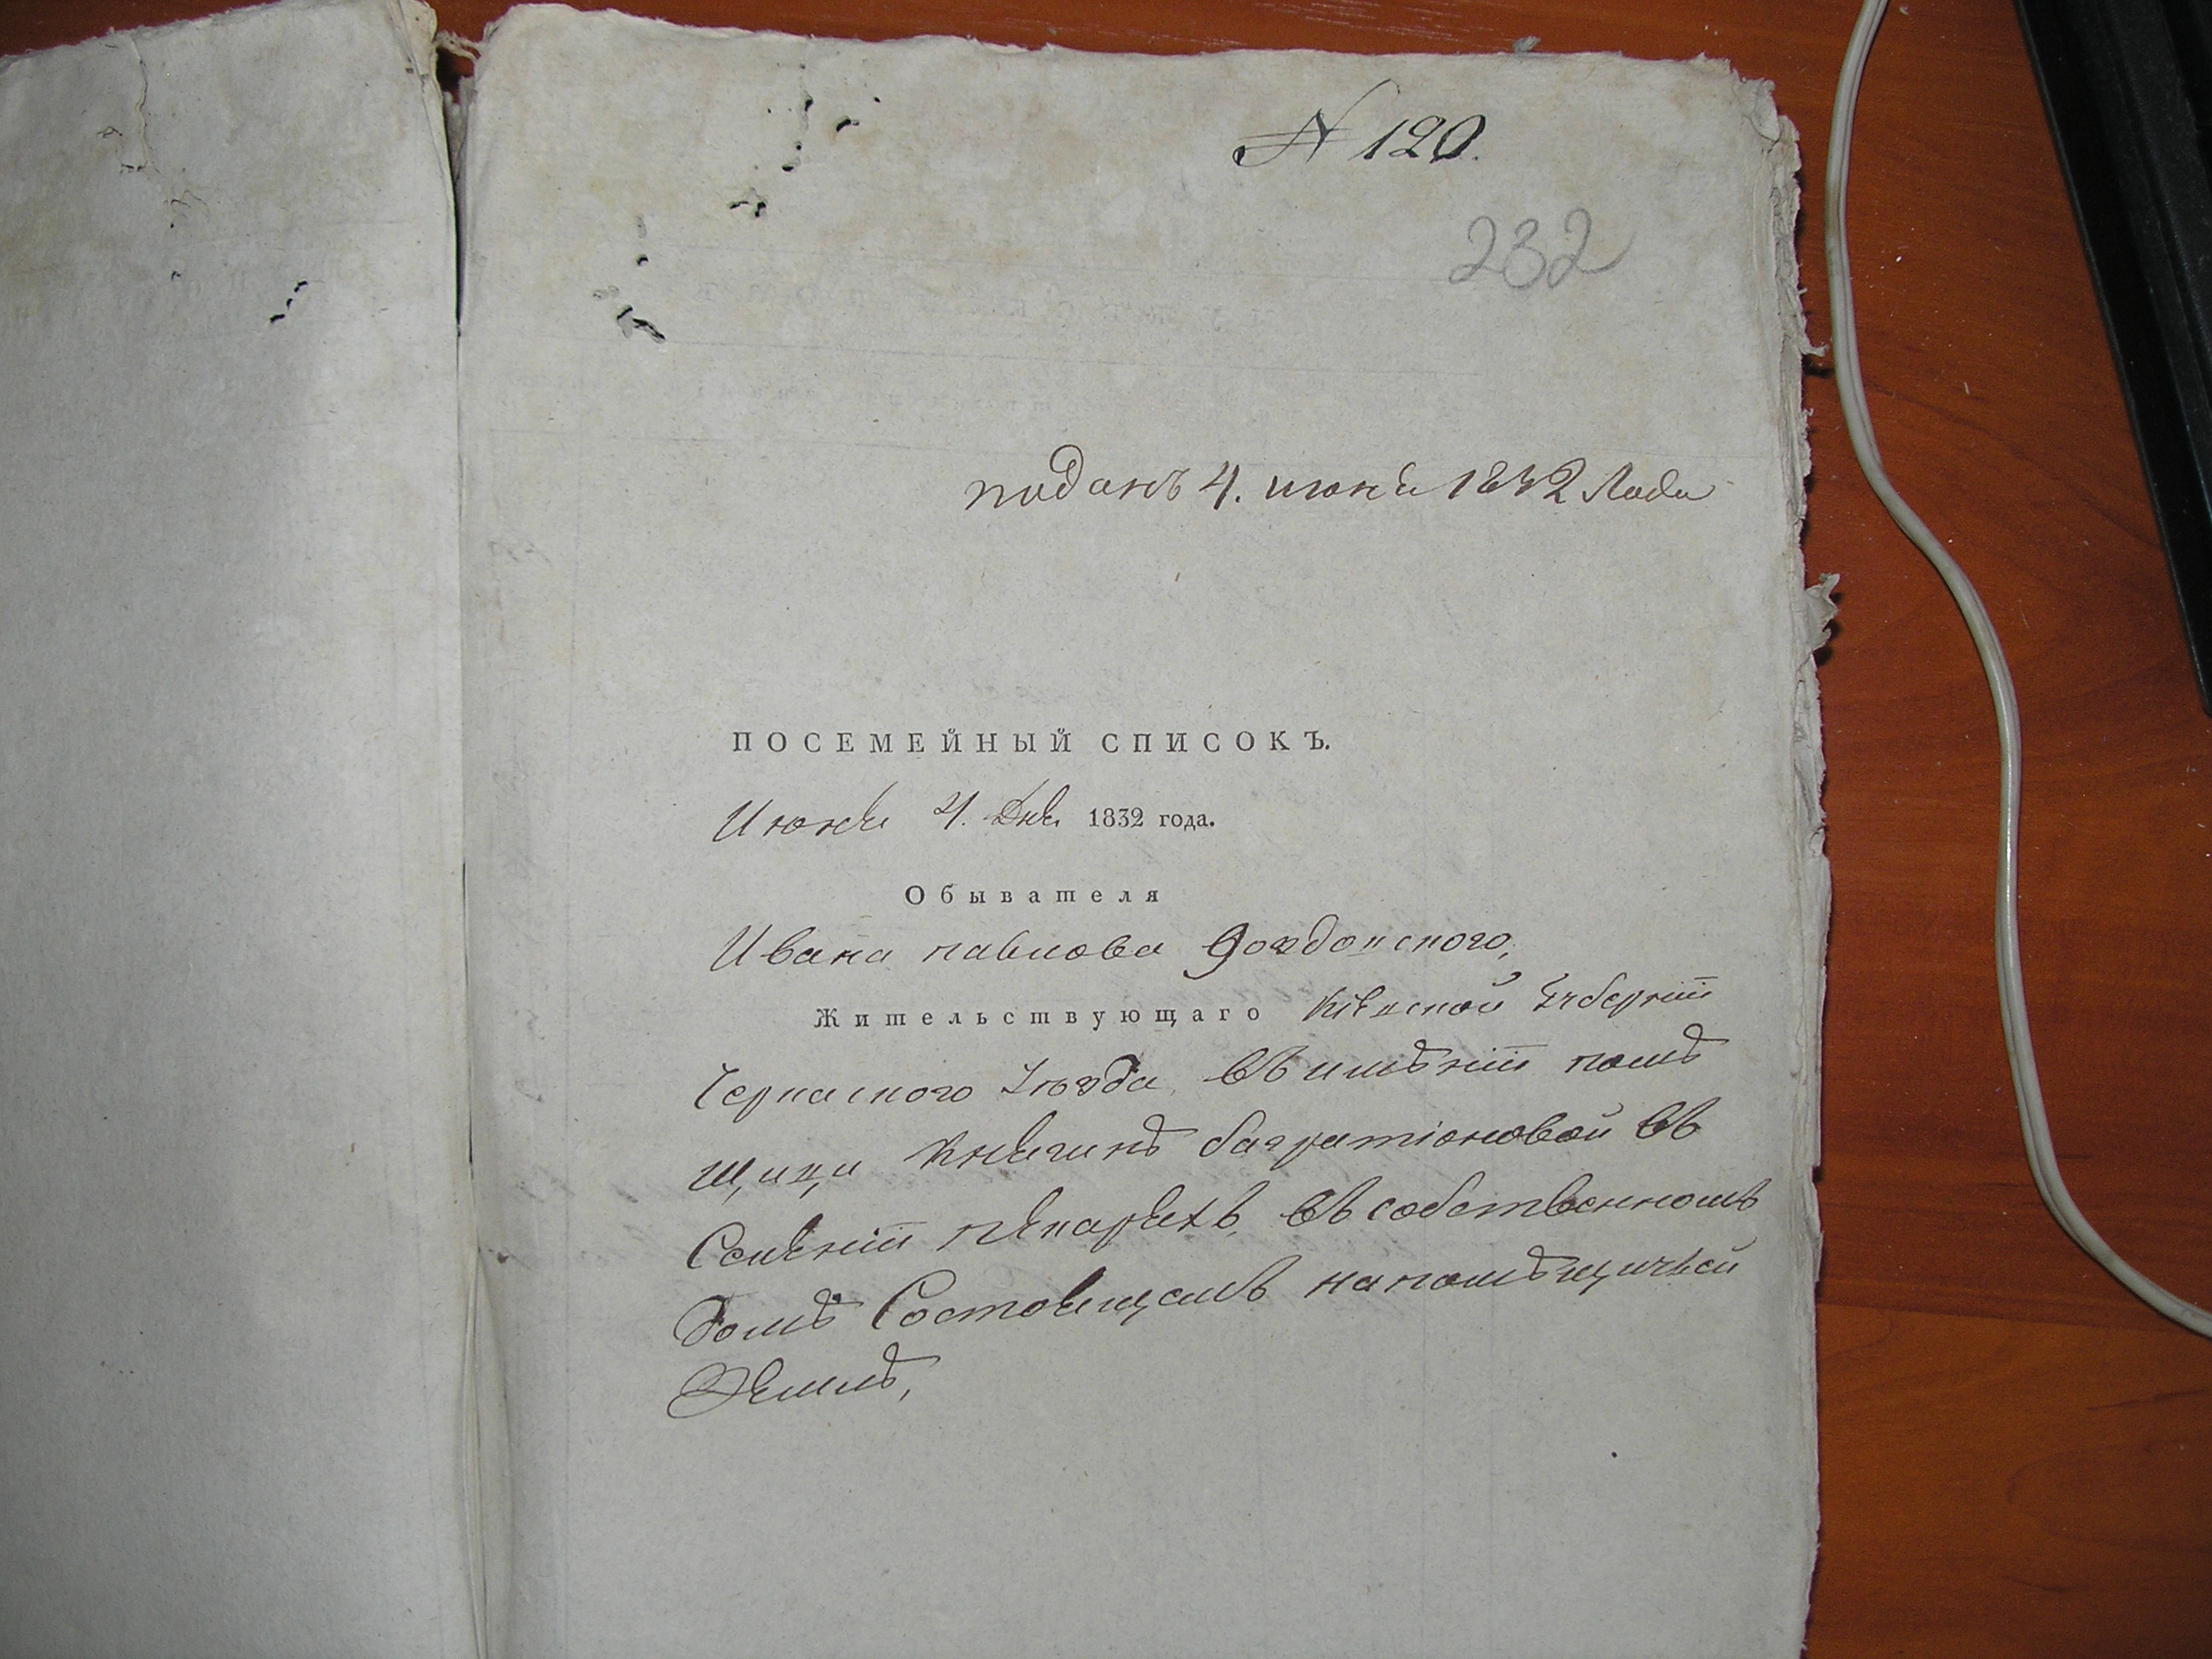 N 120.
232
поданъ 4. июня 1832 Года
ПОСЕМЕЙНЫЙ СПИСОКЪ.
Июня 4. дня 1832 года.
Обывателя
Ивана павлова
Жительствующаго Кіевской Губерніи
Черкаского Уезда, въ имѣніи помѣ
щици Княгинѣ багратіоновой въ
Селеніи пекаряхъ, въ собственномъ
домѣ Состоящемъ на помѣщичьей
Земле,